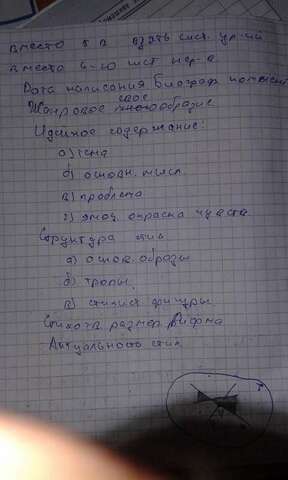 вместо 5 п взять сист. ур-ий
вместо 6-го сист нер-в
Дата написания Биограф
Жанровое своеобразие
Идейное содержание:
а) тема
б) основн. мысл.
в) проблема
г) эмоц окраска чувств
Структура стих
а) основ. образы
б) тропы,
в) стилист фигуры
Стихотв. размер, Рифма
Актуальность стих